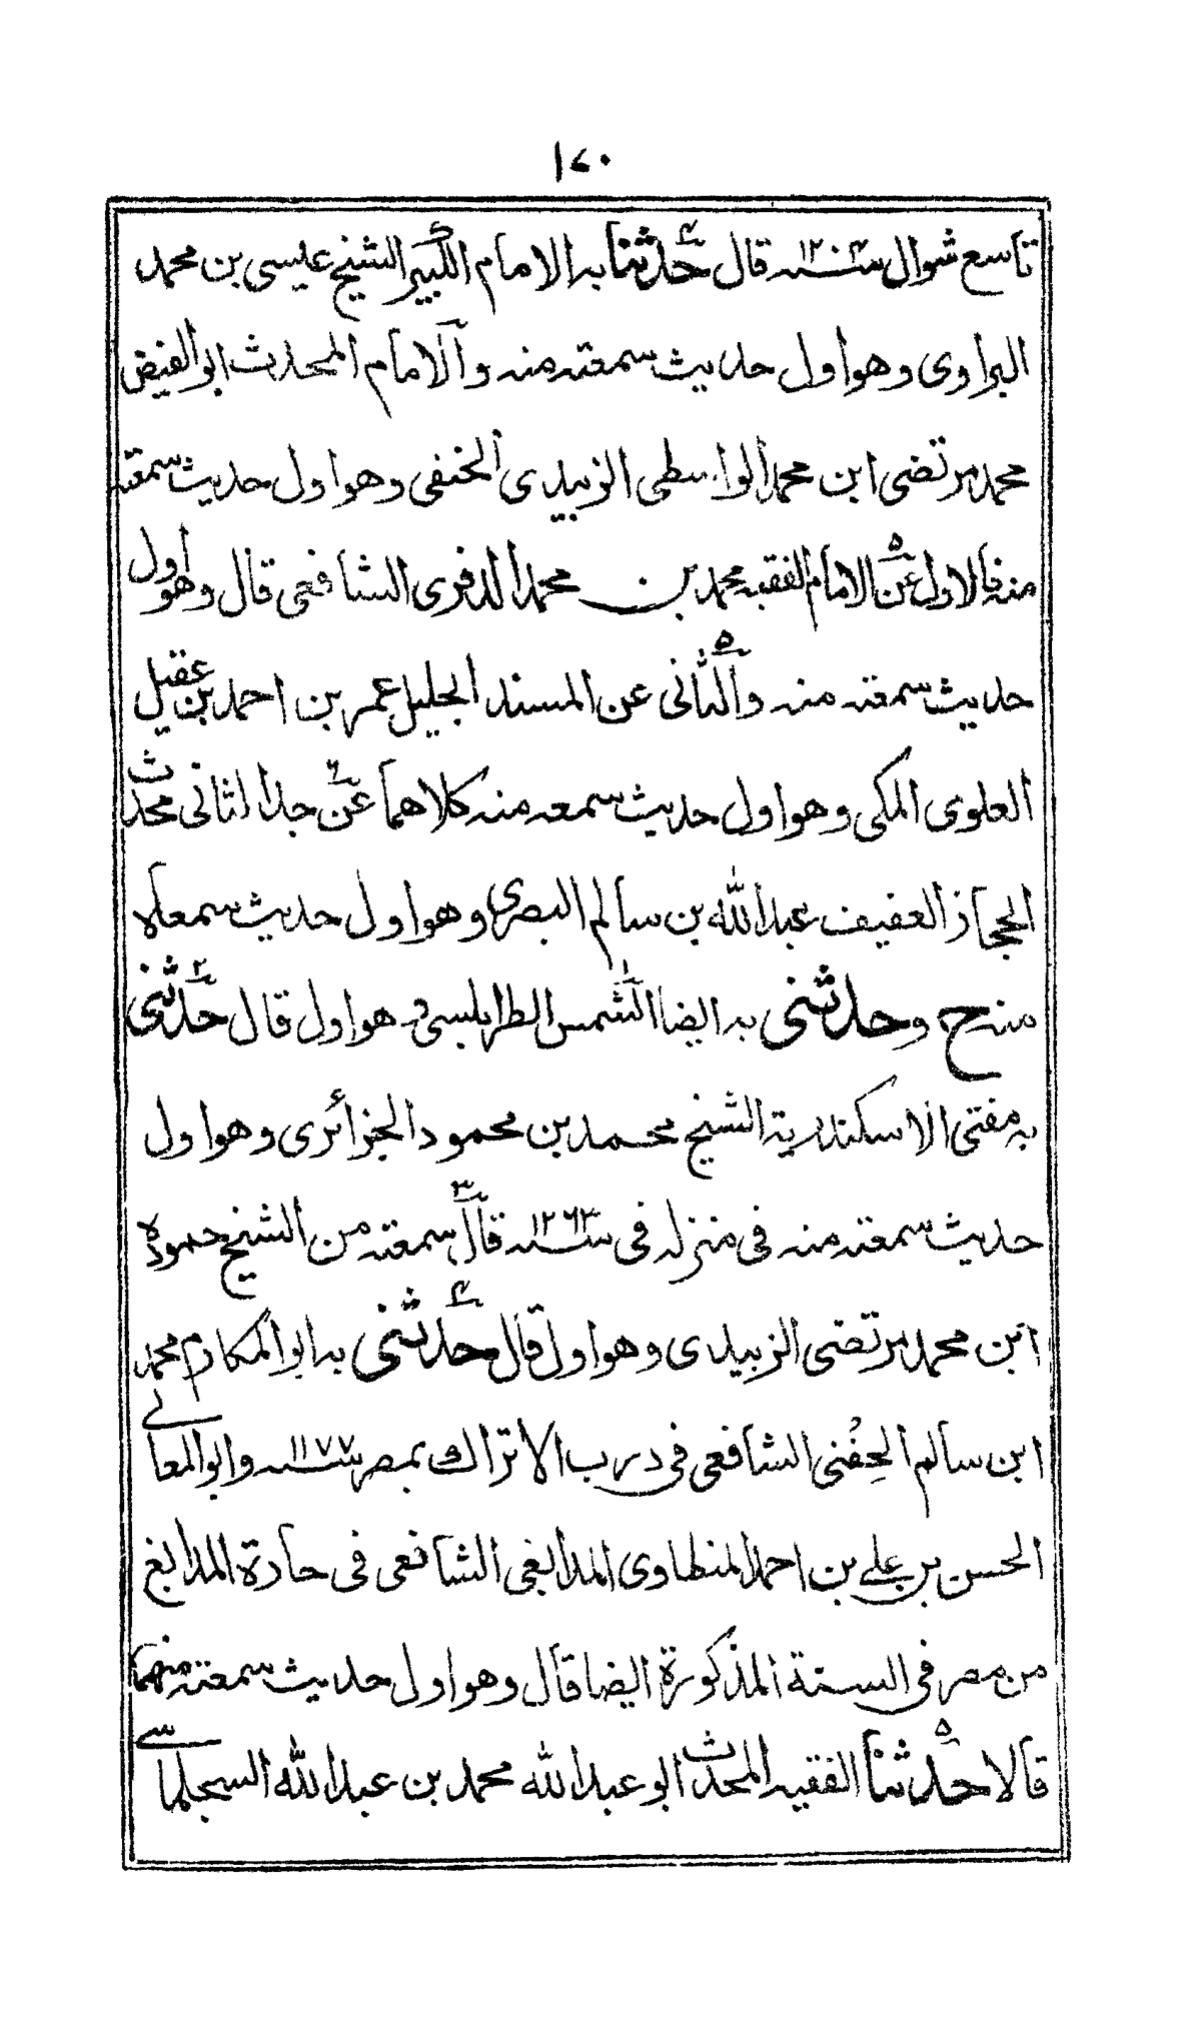 ١٧٠
تاسع شوال سنه ١٢٠٤ قال حدثنا به الامام الكبير الشيخ عيسى بن محمد
البراوى وهو اول حديث سمعته منه والامام المحدث ابو الفيض
محمد مرتضى ابن محمد الواسطى الزبيدى الحنفى وهو اول حديث سمعته
منه فالاول عن الامام الفقيه محمد بن محمد الدفرى الشافعى قال وهو اول
حديث سمعته منه والثانى عن المسند الجليل عمر بن احمد بن عقيل
العلوى المكى وهو اول حديث سمعه منه كلاهما عن جد الثانى محدث
الحجاز العفيف عبد الله بن سالم البصرى وهو اول حديث سمعاه
منه ح وحدثنى به ايضا الشمس الطرابلسى وهو اول قال حدثنى
به مفتى الاسكندرية الشيخ محمد بن محمود الجزائرى وهو اول
حديث سمعته منه فى منزله فى سنه ١٢٦٣ قال سمعته من الشيخ حموده
ابن محمد مرتضى الزبيدى وهو اول قال حدثنى به ابو المكارم محمد
ابن سالم الحِفْنى الشافعى فى درب الاتراك بمصر سنه ١١٧٧ وابو المعالى
الحسن بن على بن احمد المنطاوى المدابغى الشافعى فى حارة المدابغ
من مصر فى السنة المذكورة ايضا قال وهو اول حديث سمعته منهما
قالا حدثنا الفقيه المحدث ابو عبد الله محمد بن عبد الله السجلماسى